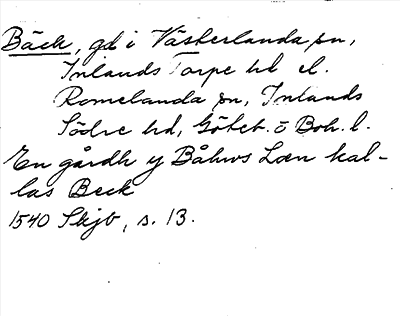 Bäck, gd i Västerlanda sn,
Inlands Torpe hd el.
Romelanda sn, Inlands
Södre hd, Göteb. o Boh. l.
En gårdh y Båhws Læn kal-
las Beck
1540 Skjb, s. 13.